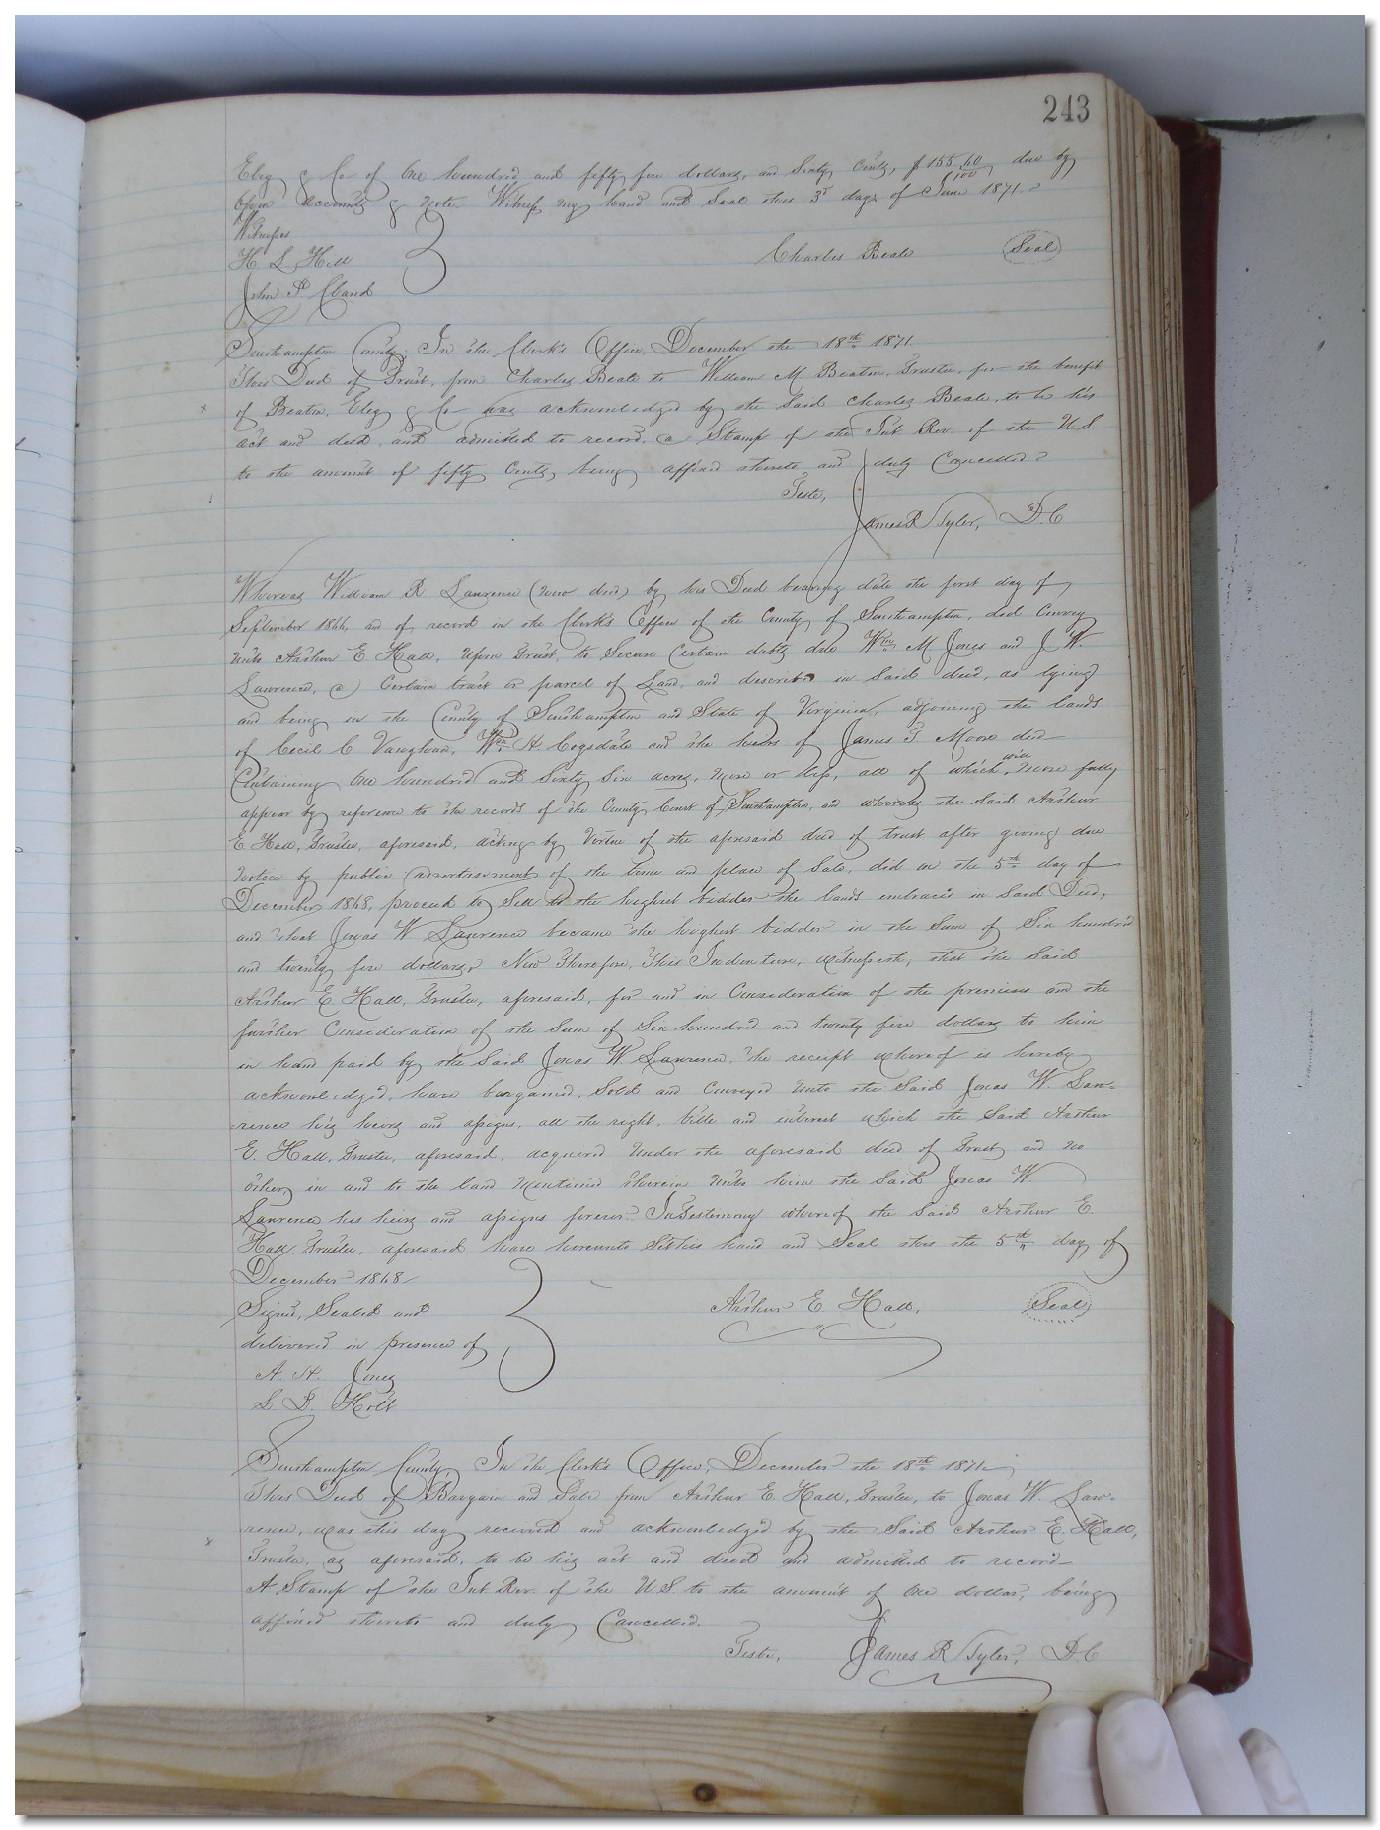 243
Eley & Co of One hundred and fifty five dollars, and Sixty Cents, $155 60/100 due by
Open accounts & note. Witness my hand and Seal this 3d day of June 1871.
Witnesses
H. L. Hill
John P. Eland
Charles Beale Seal
Southampton County, In the Clerk's Office, December the 18th 1871.
This Deed of Trust, from Charles Beale to William M Beaton, Trustee, for the benefit
of Beaton, Eley & Co was acknowledged by the Said Charles Beale, to be his
act and deed, and admitted to record, a Stamp of the Int Rev. of the U S
to the amount of fifty Cents, being affixed thereto and duly Cancelled
Teste,
James R Tyler, D.C
Whereas William R Lawrence (now decd) by his Deed bearing date the first day of
September 1866, and of record in the Clerk's Office of the County of Southampton, did Convey
unto Arthur E. Hall, Upon Trust, to Secure Certain debts due Wm M Jones and J. W.
Lawrence, a Certain tract or parcel of Land, and described in Said deed, as lying
and being in the County of Southampton and State of Virginia, adjoining the lands
of Cecil C Vaughan, Wm H. Cogsdale and the heirs of James T. Moore decd
Containing One hundred and Sixty Six acres, more or less, all of which will more fully
appear by reference to the records of the County Court of Southampton, and whereas the Said Arthur
E Hall, Trustee, aforesaid, acting by Virtue of the aforesaid deed of trust after giving due
notice by public advertisement of the time and place of Sale, did on the 5th day of
December 1868, proceed to Sell to the highest bidder the lands embraced in Said Deed,
and that Jonas W Lawrence became the highest bidder in the Sum of Six hundred
and twenty five dollars, Now Therefore, This Indenture, witnesseth, that the Said
Arthur E Hall, Trustee, aforesaid, for and in Consideration of the premises and the
further Consideration of the Sum of Six hundred and twenty five dollars to him
in hand paid by the Said Jonas W Lawrence, the receipt whereof is hereby
acknowledged, have bargained, Sold and Conveyed unto the Said Jonas W. Law-
rence his heirs and assigns, all the right, title and interest which the Said Arthur
E. Hall, Trustee, aforesaid, acquired Under the aforesaid deed of Trust, and no
other, in and to the land mentioned therein unto him the Said Jonas W.
Lawrence his heirs and assigns forever. In Testimony whereof the Said Arthur E.
Hall, Trustee, aforesaid have hereunto Set his hand and Seal this the 5th day of
December 1868
Signed, Sealed and
delivered in presence of
A. H. Jones
L. D. Holt
Arthur E Hall, Seal
Southampton County, In the Clerk's Office, December the 18th 1871
This Deed of Bargain and Sale from Arthur E. Hall, Trustee, to Jonas W. Law-
rence, was this day received and acknowledged by the Said Arthur E. Hall,
Trustee, as aforesaid, to be his act and deed and admitted to record
A Stamp of the Int Rev. of the U S to the amount of One dollar, being
affixed thereto and duly Cancelled.
Teste, James R Tyler, D.C